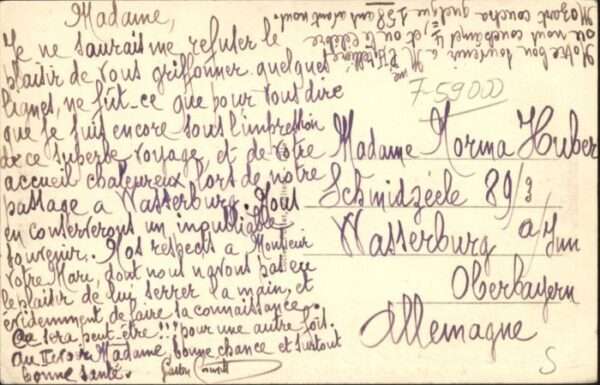 Madame,
Je ne saurais me refuser le
plaisir de vous griffonner quelques
lignes, ne fût-ce que pour vous dire
que je suis encore sous l'impression
de ce superbe voyage, et de votre
accueil chaleureux lors de notre
passage a Wasserburg. Nous
en conserverons un inoubliable
souvenir. Mes respects a Monsieur
votre Mari, dont nous n'avons pas eu
le plaisir de lui serrer la main, et
évidemment de faire sa connaissance.
Ce sera peut-être!!! pour une autre fois.
Au Revoir Madame, bonne chance et surtout
bonne santé. Gaston
Notre bon souvenir a
ou nous couchâmes et ou le célèbre
Mozart coucha quelque 158 ans avant nous.
7-59000
Madame Norma Huber
Schmidzeile 89/3
Wasserburg a/Inn
Oberbayern
Allemagne
S